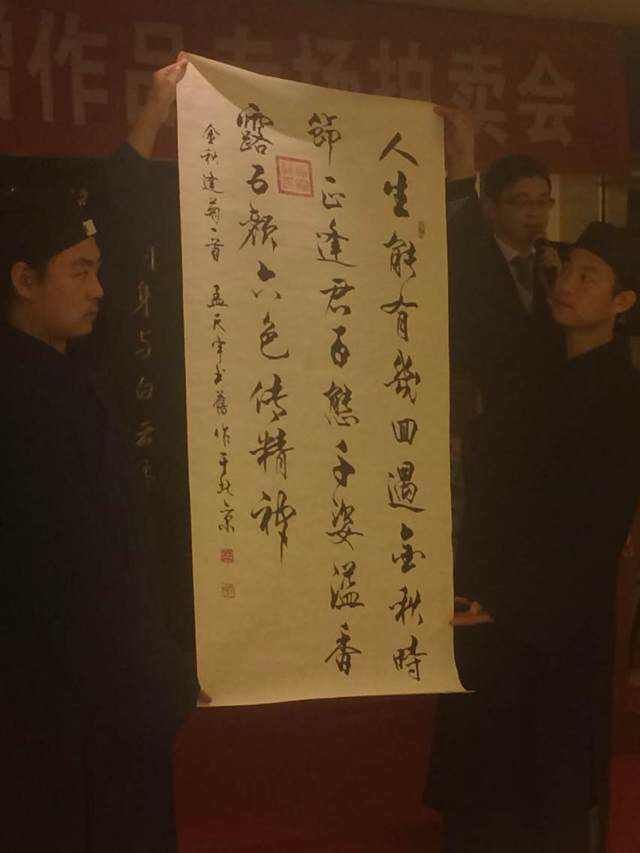 作品专场拍卖会
人生能有幾回遇金秋時
節正逢君百態千姿溢香
露五颜六色传精神
金秋逢菊一首 孟天宇书舊作于北京
身与白云